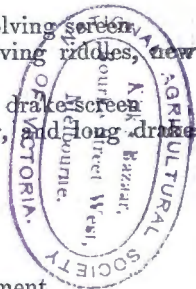 olving screen
ving riddles, new
drake-screen
, and long drake
NATIONAL AGRICULTURAL SOCIETY OF VICTORIA.
Kirk's Bazaar,
Bourke Street West,
Melbourne
ment